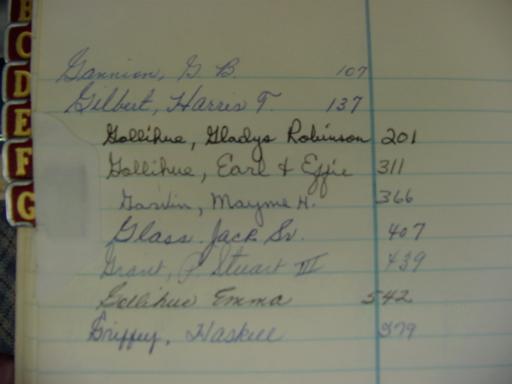 B
C
D
E
F
G
Gannion, G. B. 107
Gilbert, Harris T. 137
Gollihue, Gladys Robinson 201
Gollihue, Earl & Effie 311
Gaskin, Mayme H. 366
Glass, Jack Sr. 407
Grant, P. Stuart III 439
Gollihue Emma 542
Griffey, Haskell 579